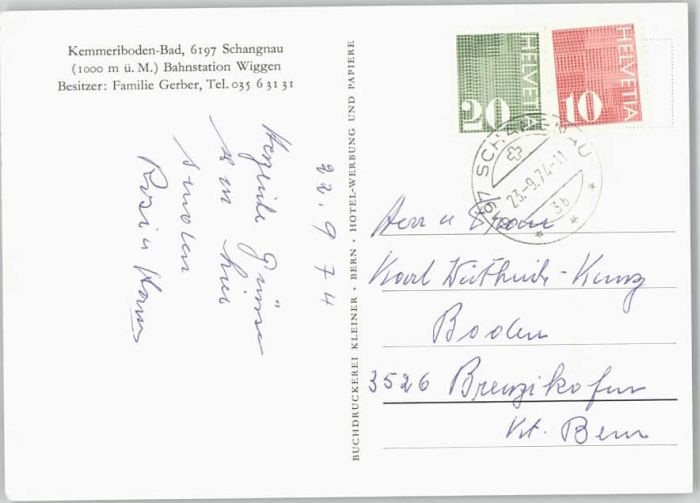 Kemmeriboden-Bad, 6197 Schangnau
(1000 m ü. M.) Bahnstation Wiggen
Besitzer: Familie Gerber, Tel. 035 6 31 31
22.9.74
Herzliche Grüsse
von hier
senden
Rosi u Hans
BUCHDRUCKEREI KLEINER · BERN · HOTEL-WERBUNG UND PAPIERE
HELVETIA
20
HELVETIA
10
6197 SCHANGNAU
23.-9.74-11
3b
Herr u Frau
Karl Wüthrich-Kunz
Boden
3526 Brenzikofen
Kt. Bern